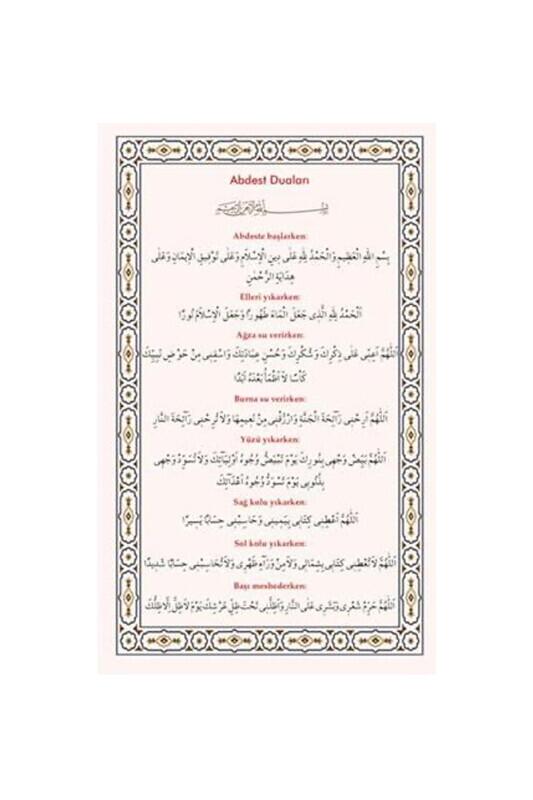 Abdest Duaları
Abdeste başlarken:
بِسْمِ اللّٰهِ الْعَظِيمِ وَالْحَمْدُ لِلّٰهِ عَلَى دِينِ الْاِسْلَامِ وَعَلَى تَوْفِيقِ الْاِيمَانِ وَعَلَى
هِدَايَةِ الرَّحْمٰنِ
Elleri yıkarken:
اَلْحَمْدُ لِلّٰهِ الَّذِى جَعَلَ الْمَاءَ طَهُورًا وَجَعَلَ الْاِسْلَامَ نُورًا
Ağza su verirken:
اَللّٰهُمَّ اَعِنِّى عَلَى ذِكْرِكَ وَشُكْرِكَ وَحُسْنِ عِبَادَتِكَ وَاسْقِنِى مِنْ حَوْضِ نَبِيِّكَ
كَأْسًا لَا اَظْمَأُ بَعْدَهُ اَبَدًا
Burna su verirken:
اَللّٰهُمَّ اَرِحْنِى رَآئِحَةَ الْجَنَّةِ وَارْزُقْنِى مِنْ نَعِيمِهَا وَلَا تُرِحْنِى رَآئِحَةَ النَّارِ
Yüzü yıkarken:
اَللّٰهُمَّ بَيِّضْ وَجْهِى بِنُورِكَ يَوْمَ تَبْيَضُّ وُجُوهُ اَوْلِيَآئِكَ وَلَا تُسَوِّدْ وَجْهِى
بِذُنُوبِى يَوْمَ تَسْوَدُّ وُجُوهُ اَعْدَآئِكَ
Sağ kolu yıkarken:
اَللّٰهُمَّ اَعْطِنِى كِتَابِى بِيَمِينِى وَحَاسِبْنِى حِسَابًا يَسِيرًا
Sol kolu yıkarken:
اَللّٰهُمَّ لَا تُعْطِنِى كِتَابِى بِشِمَالِى وَلَا مِنْ وَرَآءِ ظَهْرِى وَلَا تُحَاسِبْنِى حِسَابًا شَدِيدًا
Başı meshederken:
اَللّٰهُمَّ حَرِّمْ شَعْرِى وَبَشَرِى عَلَى النَّارِ وَاَظِلَّنِى تَحْتَ ظِلِّ عَرْشِكَ يَوْمَ لَا ظِلَّ اِلَّا ظِلُّكَ